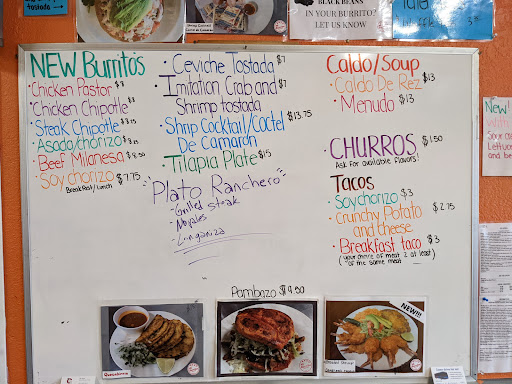 BLACK BEANS
IN YOUR BURRITO?
LET US KNOW
tostada
NEW Burritos
• Chicken Pastor $8
• Chicken Chipotle $8
• Steak Chipotle
• Asado/chorizo
• Beef Milanesa $9.50
• Soy chorizo $7.75
Breakfast/Lunch
• Ceviche Tostada $7
• Imitation Crab and $7
Shrimp tostada
• Shrip Cocktail/Coctel $13.75
De Camaron
• Tilapia Plate $15
"Plato Ranchero"
- Grilled steak
- Nopales
- Longaniza
Caldo/Soup
• Caldo De Rez $13
• Menudo $13
CHURROS $1.50
Ask for available flavors!
Tacos
• Soychorizo $3
• Crunchy Potato $2.75
and cheese
• Breakfast taco $3
(your choice of meat 2 at least)
of the same meat
Pambazo $9.50
NEW!!!
New!